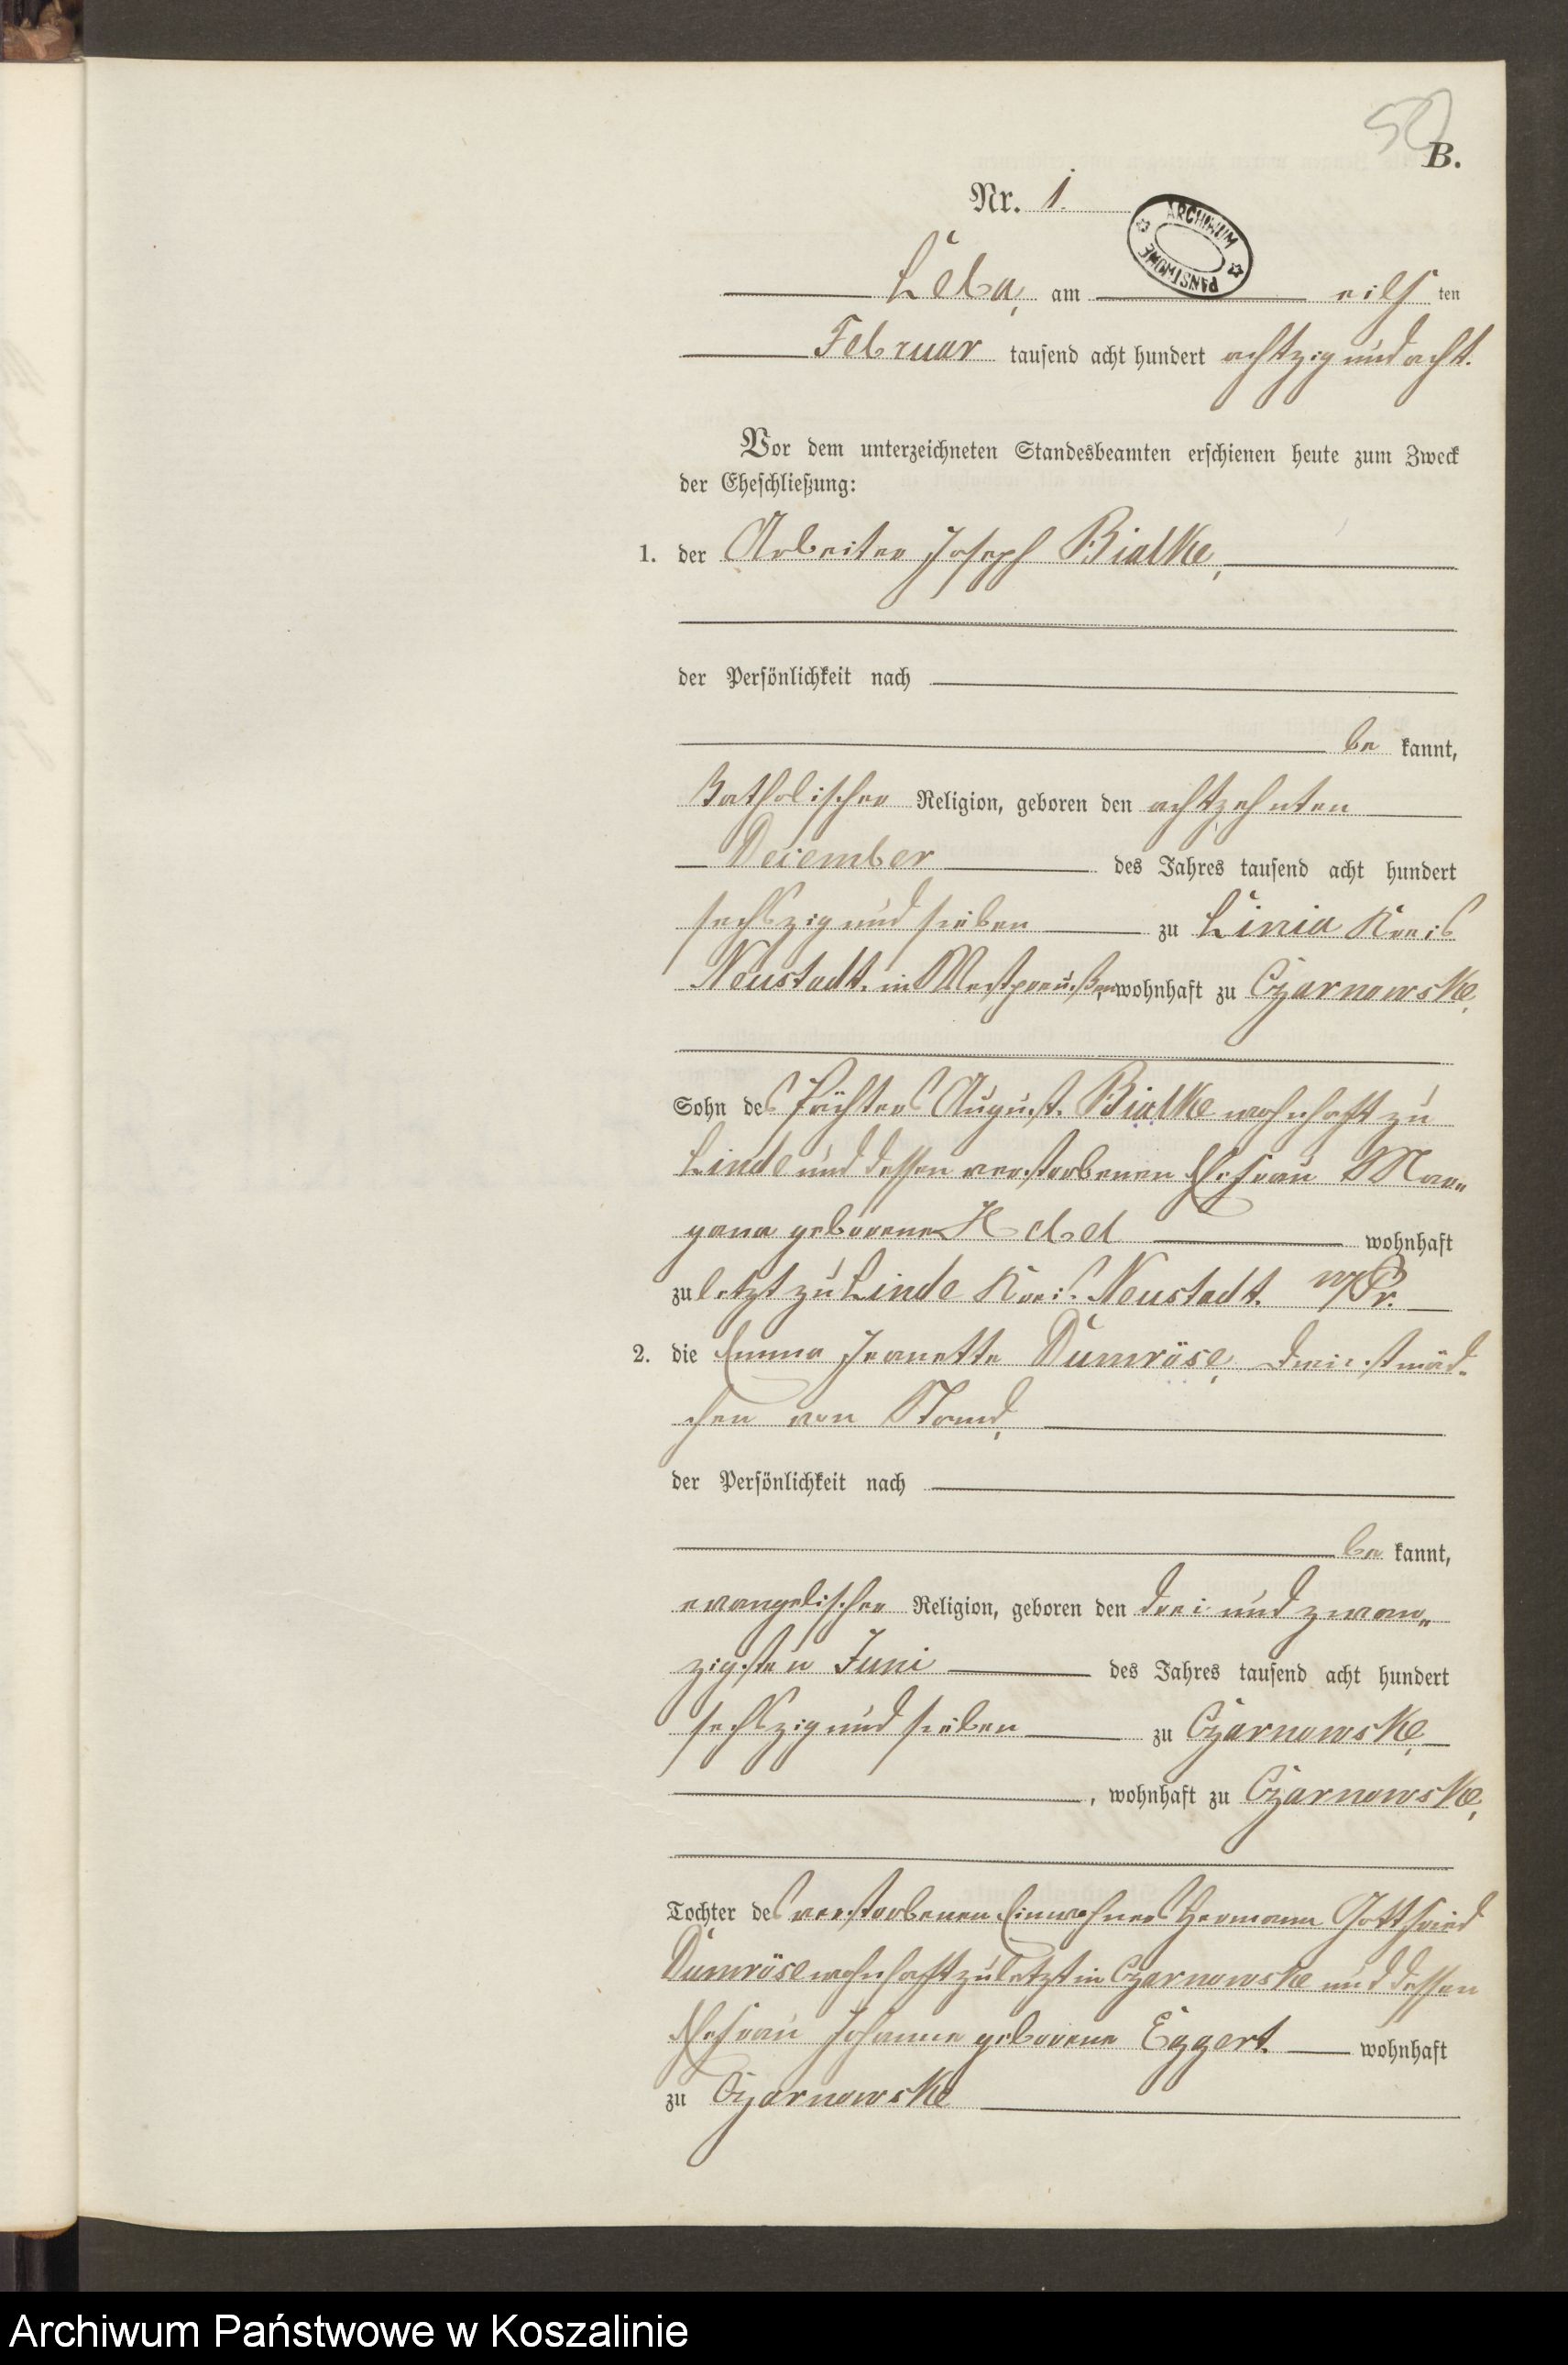 50
B.
Nr. 1.
ARCHIWUM PAŃSTWOWE
Leba, am eilf ten
Februar tausend acht hundert achtzig und acht.
Vor dem unterzeichneten Standesbeamten erschienen heute zum Zweck
der Eheschließung:
1. der Arbeiter Joseph Bialke,
der Persönlichkeit nach
be kannt,
katholischer Religion, geboren den achtzehnten
December des Jahres tausend acht hundert
sechszig und sieben zu Linia Kreis
Neustadt in Westpreußen, wohnhaft zu Czarnowske,
Sohn des Pächters August Bialke wohnhaft zu
Linde und dessen verstorbenen Ehefrau
geborene wohnhaft
zuletzt zu Linde Kreis Neustadt W/Pr.
2. die Emma Jeanette Dumröse, Dienstmäd-
chen von Stand,
der Persönlichkeit nach
be kannt,
evangelischer Religion, geboren den drei und zwan-
zigsten Juni des Jahres tausend acht hundert
sechszig und sieben zu Czarnowske,
, wohnhaft zu Czarnowske,
Tochter des verstorbenen Einwohners Hermann Gottfried
Dumröse wohnhaft zuletzt in Czarnowske und dessen
Ehefrau Johanne geborene Eggert wohnhaft
zu Czarnowske
Archiwum Państwowe w Koszalinie